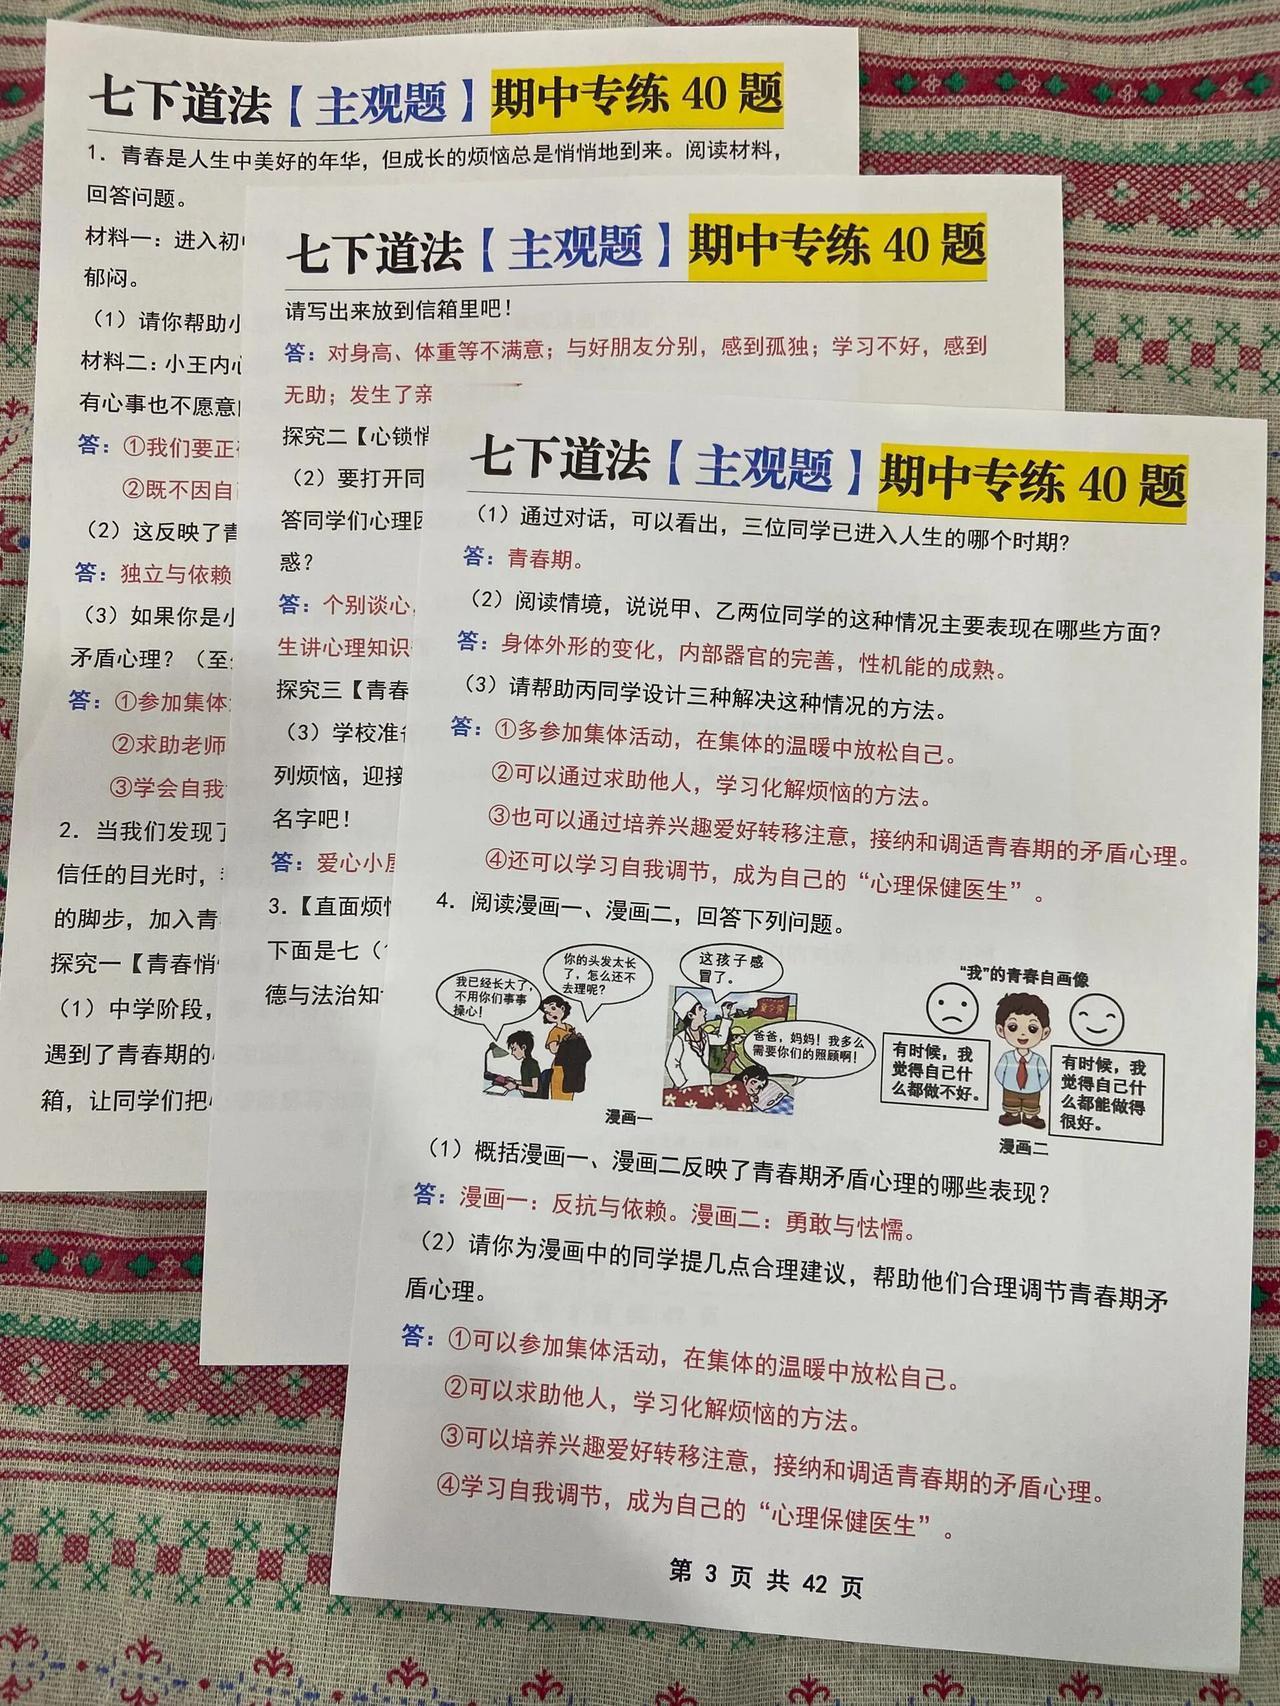 七下道法【主观题】期中专练 40 题
1. 青春是人生中美好的年华，但成长的烦恼总是悄悄地到来。阅读材料，
回答问题。
材料一：进入初
郁闷。
（1）请你帮助小
材料二：小王内心
有心事也不愿意
答：①我们要正
②既不因自
（2）这反映了青
答：独立与依赖
（3）如果你是小
矛盾心理？（至
答：①参加集体
②求助老师
③学会自我
2. 当我们发现了
信任的目光时，
的脚步，加入青
探究一【青春悄
（1）中学阶段，
遇到了青春期的
箱，让同学们把
七下道法【主观题】期中专练 40 题
请写出来放到信箱里吧！
答：对身高、体重等不满意；与好朋友分别，感到孤独；学习不好，感到
无助；发生了亲
探究二【心锁悄
（2）要打开同
答同学们心理困
惑？
答：个别谈心，
生讲心理知识
探究三【青春
（3）学校准备
列烦恼，迎接
名字吧！
答：爱心小屋
3.【直面烦恼
下面是七（
德与法治知
七下道法【主观题】期中专练 40 题
（1）通过对话，可以看出，三位同学已进入人生的哪个时期？
答：青春期。
（2）阅读情境，说说甲、乙两位同学的这种情况主要表现在哪些方面？
答：身体外形的变化，内部器官的完善，性机能的成熟。
（3）请帮助丙同学设计三种解决这种情况的方法。
答：①多参加集体活动，在集体的温暖中放松自己。
②可以通过求助他人，学习化解烦恼的方法。
③也可以通过培养兴趣爱好转移注意，接纳和调适青春期的矛盾心理。
④还可以学习自我调节，成为自己的“心理保健医生”。
4. 阅读漫画一、漫画二，回答下列问题。
我已经长大了，
不用你们事事
操心！
你的头发太长
了，怎么还不
去理呢？
这孩子感
冒了。
爸爸，妈妈！我多么
需要你们的照顾啊！
漫画一
“我”的青春自画像
有时候，我
觉得自己什
么都做不好。
有时候，我
觉得自己什
么都能做得
很好。
漫画二
（1）概括漫画一、漫画二反映了青春期矛盾心理的哪些表现？
答：漫画一：反抗与依赖。漫画二：勇敢与怯懦。
（2）请你为漫画中的同学提几点合理建议，帮助他们合理调节青春期矛
盾心理。
答：①可以参加集体活动，在集体的温暖中放松自己。
②可以求助他人，学习化解烦恼的方法。
③可以培养兴趣爱好转移注意，接纳和调适青春期的矛盾心理。
④学习自我调节，成为自己的“心理保健医生”。
第 3 页 共 42 页